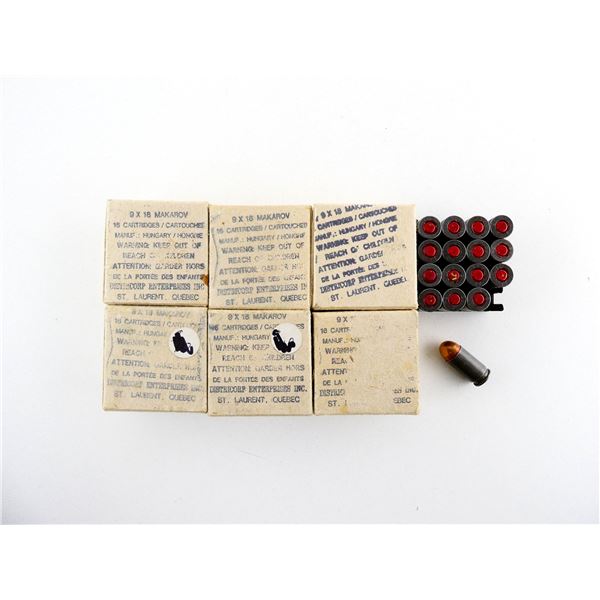 9 X 18 MAKAROV
16 CARTRIDGES / CARTOUCHES
MANUF.: HUNGARY / HONGRIE
WARNING: KEEP OUT OF
REACH OF CHILDREN
ATTENTION: GARDER HORS
DE LA PORTÉE DES ENFANTS
DISTRICORP ENTERPRISES INC.
ST. LAURENT, QUÉBEC
9 X 18 MAKAROV
16 CARTRIDGES / CARTOUCHES
MANUF.: HUNGARY / HONGRIE
WARNING: KEEP OUT OF
REACH OF CHILDREN
ATTENTION: GARDER HORS
DE LA PORTÉE DES ENFANTS
DISTRICORP ENTERPRISES INC.
ST. LAURENT, QUÉBEC
9 X 18 MAKAROV
16 CARTRIDGES / CARTOUCHES
MANUF.: HUNGARY / HONGRIE
WARNING: KEEP OUT OF
REACH OF CHILDREN
ATTENTION: GARDER
DE LA PORTÉE DES
DISTRICORP ENTERPRISES
ST. LAURENT, QUÉBEC
9 X 18 MAKAROV
16 CARTRIDGES / CARTOUCHES
MANUF.: HUNGARY
WARNING: KEEP
REACH OF
ATTENTION: GARDER HORS
DE LA PORTÉE DES ENFANTS
DISTRICORP ENTERPRISES INC.
ST. LAURENT, QUÉBEC
9 X 18 MAKAROV
16 CARTRIDGES / CARTOUCHES
MANUF.: HUNGARY
WARNING: KEEP
REACH OF CHILDREN
ATTENTION: GARDER HORS
DE LA PORTÉE DES ENFANTS
DISTRICORP ENTERPRISES INC.
ST. LAURENT, QUÉBEC
9 X
16 CARTR
MANUF.: HU
WARNIN
REA
ATTEN
DE LA
DISTRIC ES INC.
ST. L EBEC